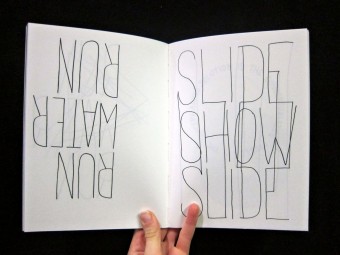 RUN
WATER
RUN
SLIDE
SHOW
SLIDE